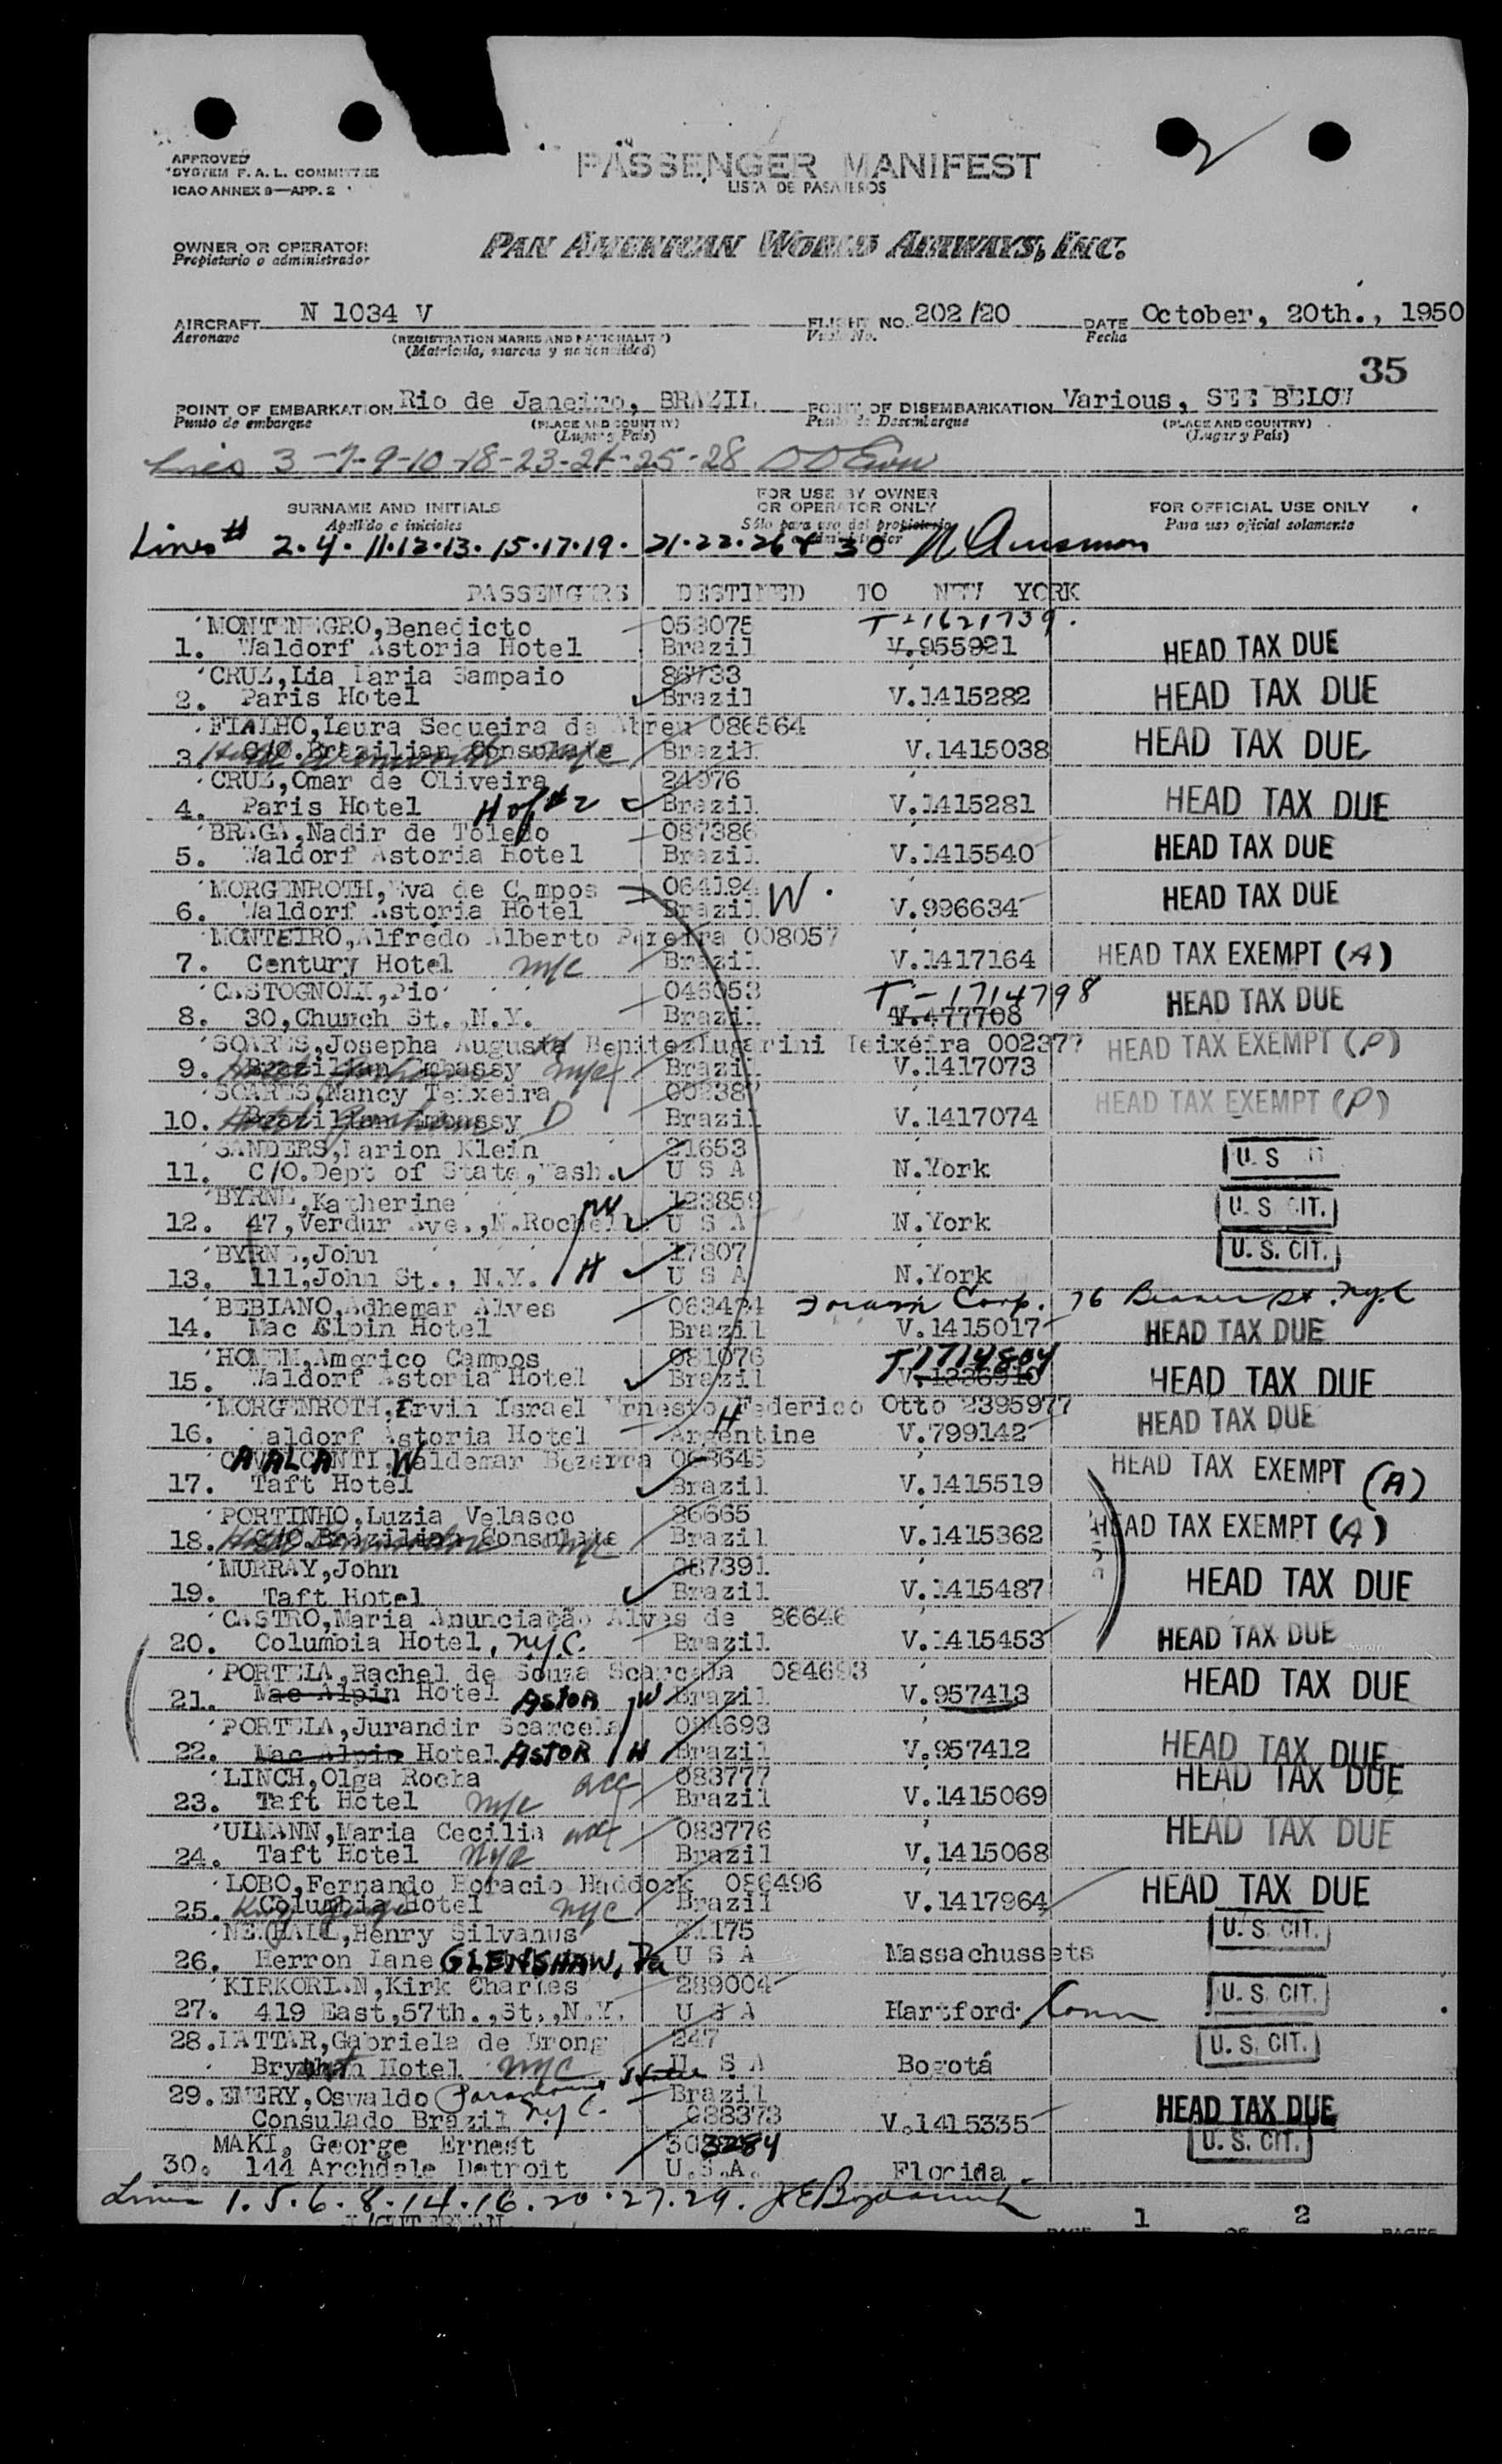 APPROVED
SYSTEM F. A. L. COMMITTEE
ICAO ANNEX 9—APP. 2
PASSENGER MANIFEST
LISTA DE PASAJEROS
2
OWNER OR OPERATOR
Propietario o administrador
PAN AMERICAN WORLD AIRWAYS, INC.
AIRCRAFT N 1034 V FLIGHT NO. 202/20 DATE October, 20th., 1950
Aeronave (REGISTRATION MARKS AND NATIONALITY) Vuelo No. Fecha
(Matricula, marcas y nacionalidad)
35
POINT OF EMBARKATION Rio de Janeiro, BRAZIL POINT OF DISEMBARKATION Various, SEE BELOW
Punto de embarque (PLACE AND COUNTRY) Punto de Desembarque (PLACE AND COUNTRY)
(Lugar y País) (Lugar y País)
Lines 3-7-9-10-18-23-24-25-28
SURNAME AND INITIALS FOR USE BY OWNER OR OPERATOR ONLY FOR OFFICIAL USE ONLY
Apellido e iniciales Sólo para uso del propietario o administrador Para uso oficial solamente
Lines # 2.4.11.12.13.15.17.19. 21.22.26 & 30
PASSENGERS DESTINED TO NEW YORK
MONTENEGRO,Benedicto 053075 T-1621739.
1. Waldorf Astoria Hotel Brazil V.955921 HEAD TAX DUE
CRUZ,Lia Maria Sampaio 86733
2. Paris Hotel Brazil V.1415282 HEAD TAX DUE
FIALHO,Laura Sequeira de Abreu 086564
3. C/O.Brazilian Consulate Brazil V.1415038 HEAD TAX DUE
CRUZ,Omar de Oliveira 24976
4. Paris Hotel H of #2 Brazil V.1415281 HEAD TAX DUE
BRAGA,Nadir de Toledo 087386
5. Waldorf Astoria Hotel Brazil V.1415540 HEAD TAX DUE
MORGENROTH,Eva de Campos 064194 W.
6. Waldorf Astoria Hotel Brazil V.996634 HEAD TAX DUE
MONTEIRO,Alfredo Alberto Pereira 008057
7. Century Hotel nyc Brazil V.1417164 HEAD TAX EXEMPT (A)
CASTOGNOLI,Pio 046053 T-1714798
8. 30,Church St.,N.Y. Brazil V.477708 HEAD TAX DUE
SOARES,Josepha Augusta Benitez Lugarini Teixeira 002377 HEAD TAX EXEMPT (P)
9. Brazilian Embassy nyc Brazil V.1417073
SOARES,Nancy Teixeira 002387
10. Brazilian Embassy D Brazil V.1417074 HEAD TAX EXEMPT (P)
SANDERS,Marion Klein 21653
11. C/O.Dept of State,Wash. U S A N.York U. S
BYRNE,Katherine W 123859
12. 47,Verdur Ave.,N.Rochell U S A N.York U. S. CIT.
BYRNE,John 17807
13. 111,John St., N.Y. H U S A N.York U. S. CIT.
BEBIANO,Adhemar Alves 063474 Corp. 76 Beaver St. nyc
14. Mac Alpin Hotel Brazil V.1415017 HEAD TAX DUE
HOMEM,Americo Campos 081076 T1714804
15. Waldorf Astoria Hotel Brazil HEAD TAX DUE
MORGENROTH,Ervin Israel Ernesto Federico Otto 2395977
16. Waldorf Astoria Hotel H Argentine V.799142 HEAD TAX DUE
CAVALCANTI,Waldemar Bezerra 063645
17. Taft Hotel Brazil V.1415519 HEAD TAX EXEMPT (A)
PORTINHO,Luzia Velasco 86665
18. C/O.Brazilian Consulate nyc Brazil V.1415362 HEAD TAX EXEMPT (A)
MURRAY,John 087391
19. Taft Hotel Brazil V.1415487 HEAD TAX DUE
CASTRO,Maria Anunciação Alves de 86646
20. Columbia Hotel, N.Y.C. Brazil V.1415453 HEAD TAX DUE
PORTELA,Rachel de Souza Scarcela 084693
21. Mac Alpin Hotel ASTOR W Brazil V.957413 HEAD TAX DUE
PORTELA,Jurandir Scarcela 084693
22. Mac Alpin Hotel ASTOR H Brazil V.957412 HEAD TAX DUE
LINCH,Olga Rocha acc 083777
23. Taft Hotel nyc Brazil V.1415069 HEAD TAX DUE
ULMANN,Maria Cecilia acc 083776
24. Taft Hotel nyc Brazil V.1415068 HEAD TAX DUE
LOBO,Fernando Horacio Haddock 086496
25. Columbia Hotel nyc Brazil V.1417964 HEAD TAX DUE
Henry Silvanus
26. Herron Lane GLENSHAW, Pa U S A Massachussets U. S. CIT.
KIRKORIAN,Kirk Charles 289004
27. 419 East,57th.,St.,N.Y. U S A Hartford Conn U. S. CIT.
28. LATTAR,Gabriela de Brong 247
Hotel nyc U S A Bogotá U. S. CIT.
29. EMERY,Oswaldo Paramount Brazil
Consulado Brazil N.Y.C. 088373 V.1415335 HEAD TAX DUE
MAKI, George Ernest 303284
30. 144 Archdale Detroit U.S.A. Florida U. S. CIT.
Lines 1.5.6.8.14.16.20.27.29.
PAGE 1 OF 2 PAGES